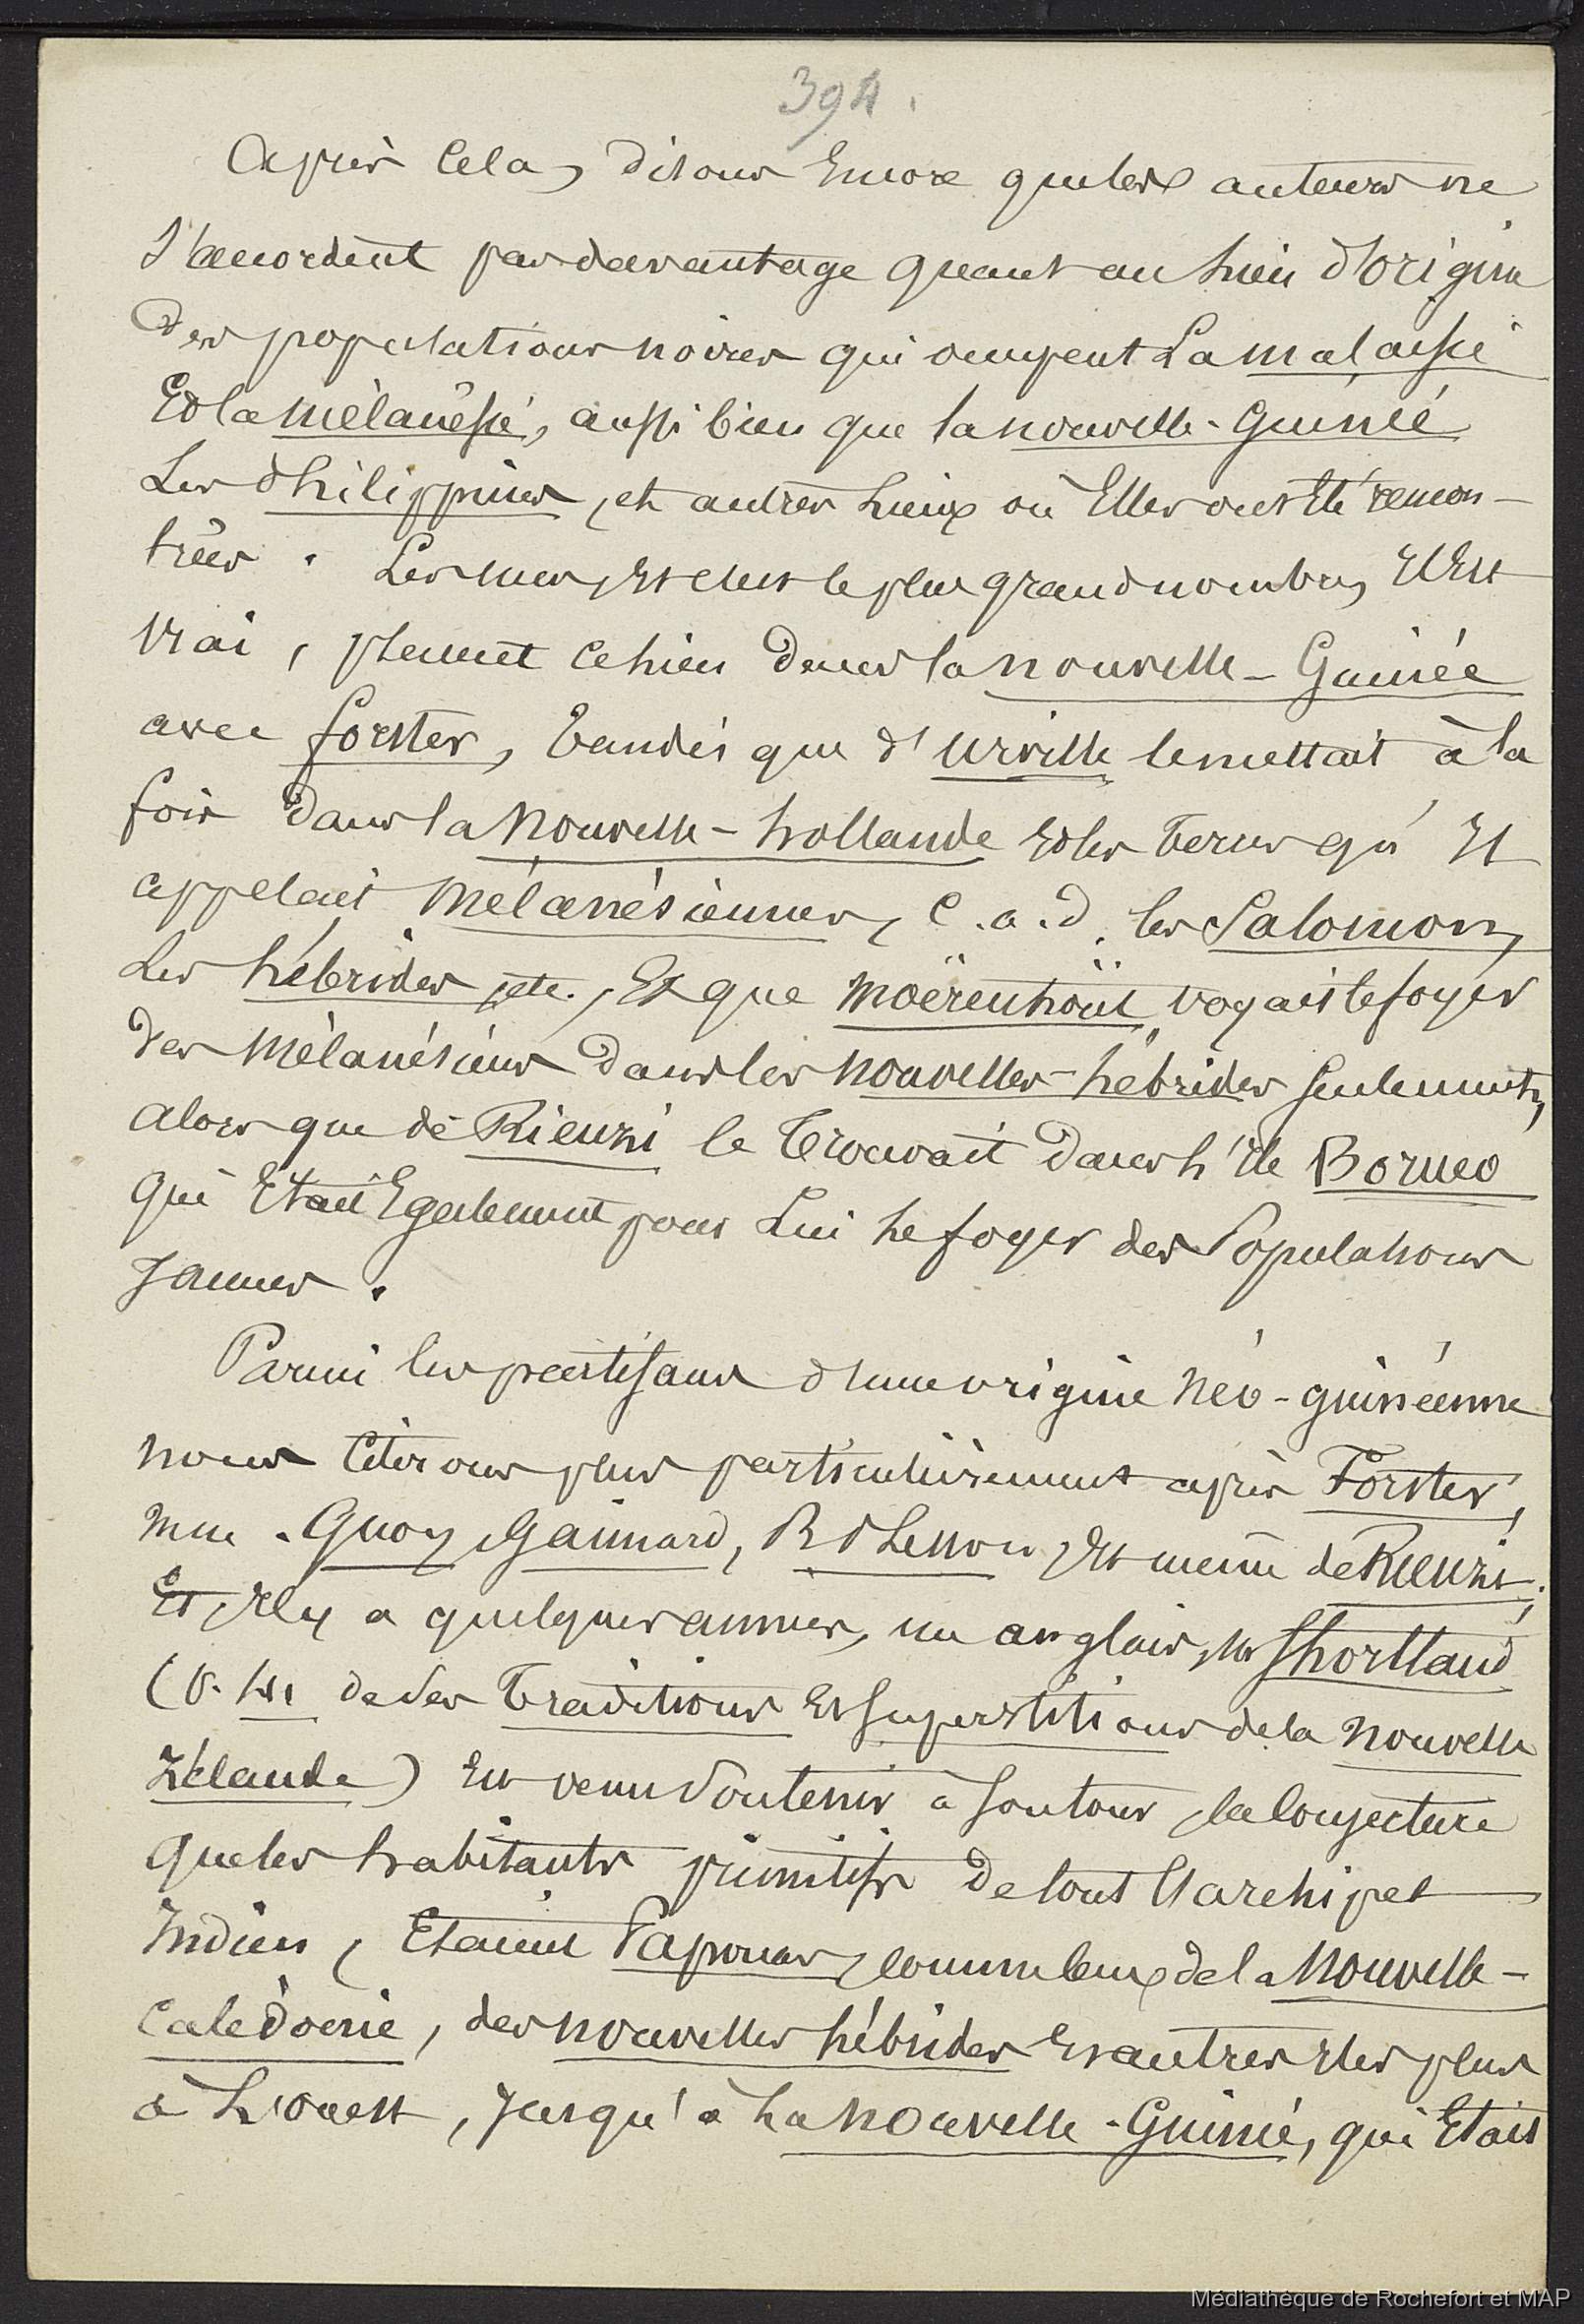 394.
Après cela, disons Encore que les auteurs ne
s'accordent pas davantage quant au lieu d'origine
des populations noires qui occupent La malaisie
Et la mélanésie, aussi bien que la nouvelle-Guinée
Les Philippines, et autres Lieux où Elles ont Eté rencon-
trées. Les uns, Et c'est le plus grand nombre, Il Est
vrai, placent ce lieu dans la nouvelle-Guinée
avec forster, tandis que d'urville le mettait à la
fois dans la nouvelle-hollande Et les terres qu'Il
appelait mélanésiennes, c.a.d. les Salomon,
Les hébrides, etc., Et que moërenhoüt voyait le foyer
des mélanésiens dans les nouvelles-hébrides seulement,
alors que de Rienzi le trouvait dans L'Ile Borneo
qui Etait Egalement pour Lui Le foyer des Populations
Jaunes.
Parmi les partisans d'une origine néo-guinéenne
nous citerons plus particulièrement après Forster,
mm. Quoy, Gaimard, R P Lesson, Et même de Rienzi;
Et, Il y a quelques années, un anglais, Mr Shortland
(V. de ses Traditions Et Superstitions de la nouvelle
Zélande) Est venu soutenir à son tour, la conjecture
que les habitants primitifs de tout l'archipel
Indien, Etaient Papouas, comme ceux de la Nouvelle-
Calédonie, des nouvelles hébrides Et autres Iles plus
à L'ouest, Jusqu'à La nouvelle-Guinée, qui Etait
Médiathèque de Rochefort et MAP